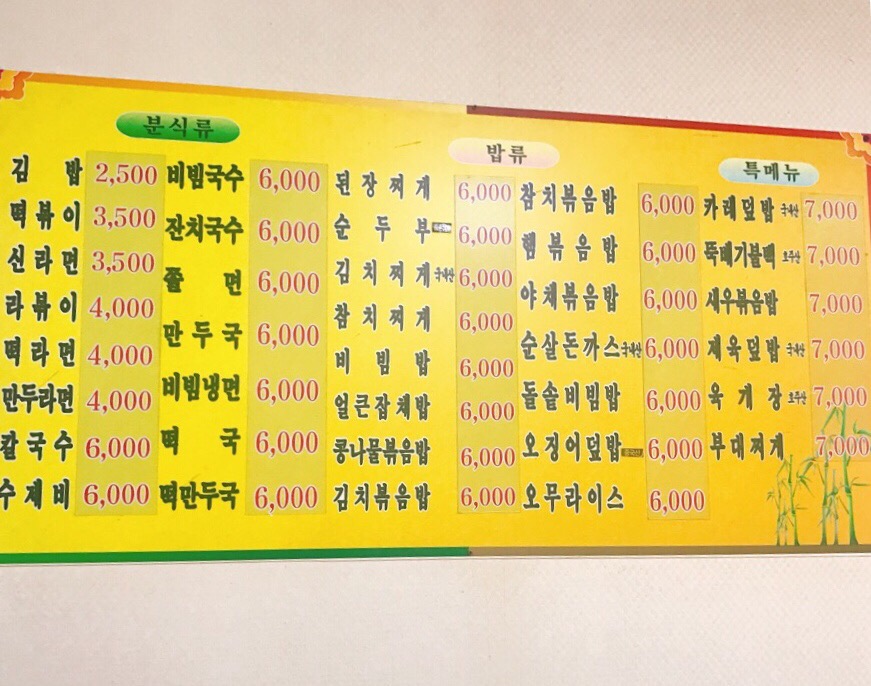 분식류
김 밥 2,500
떡볶이 3,500
신라면 3,500
라볶이 4,000
떡라면 4,000
만두라면 4,000
칼국수 6,000
수제비 6,000
비빔국수 6,000
잔치국수 6,000
쫄 면 6,000
만두국 6,000
비빔냉면 6,000
떡 국 6,000
떡만두국 6,000
밥류
된장찌개 6,000
순두부 6,000
김치찌개 국내산 6,000
참치찌개 6,000
비빔밥 6,000
얼큰잡채밥 6,000
콩나물볶음밥 6,000
김치볶음밥 6,000
참치볶음밥 6,000
햄볶음밥 6,000
야채볶음밥 6,000
순살돈까스 국내산 6,000
돌솥비빔밥 6,000
오징어덮밥 6,000
오무라이스 6,000
특메뉴
카레덮밥 국내산 7,000
뚝배기불백 호주산 7,000
새우볶음밥 7,000
제육덮밥 국내산 7,000
육개장 호주산 7,000
부대찌개 7,000